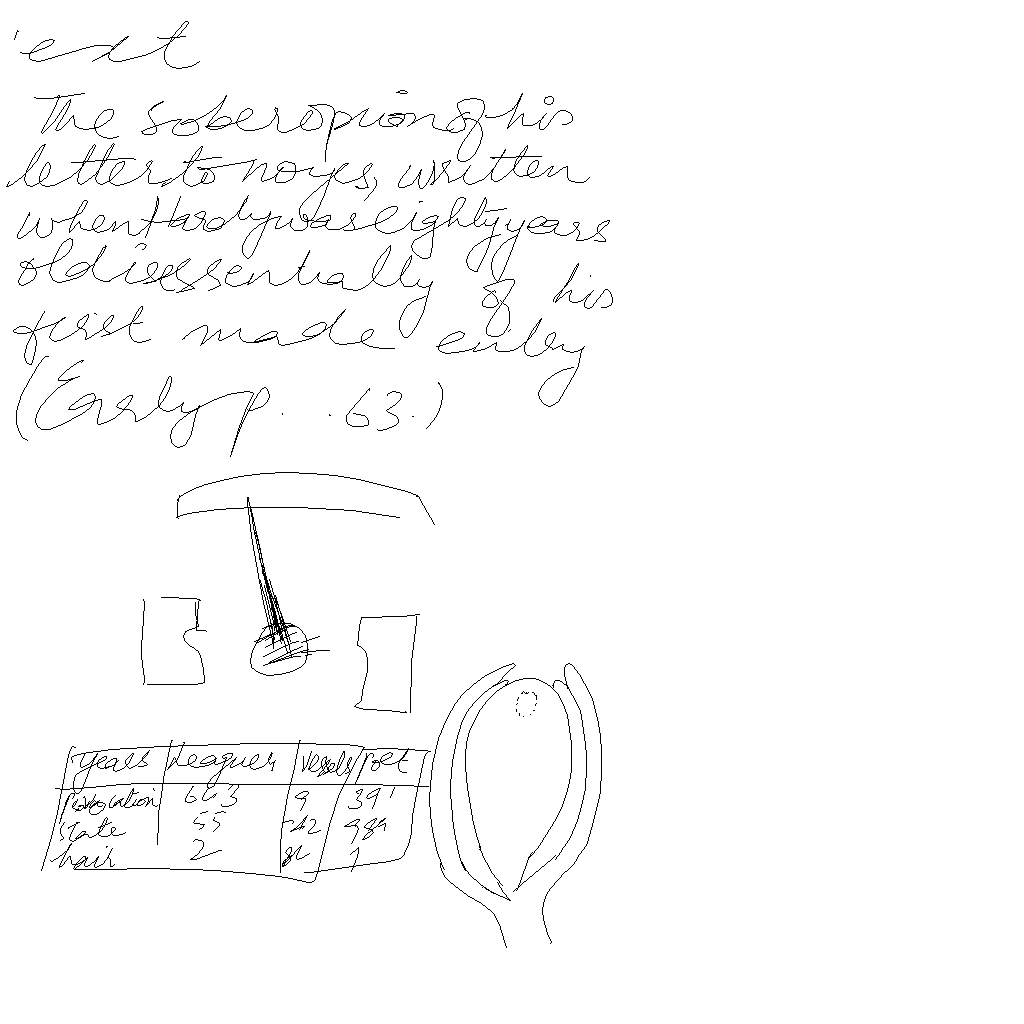 The sober opinion of his
letter to noyes, written
when Hardy was eighty years
old is essentially of his
first made enby
(Early p. . 63.)
years Leagues Vessels Poet
663 9 39'
State 55 542 989
hair 2 1